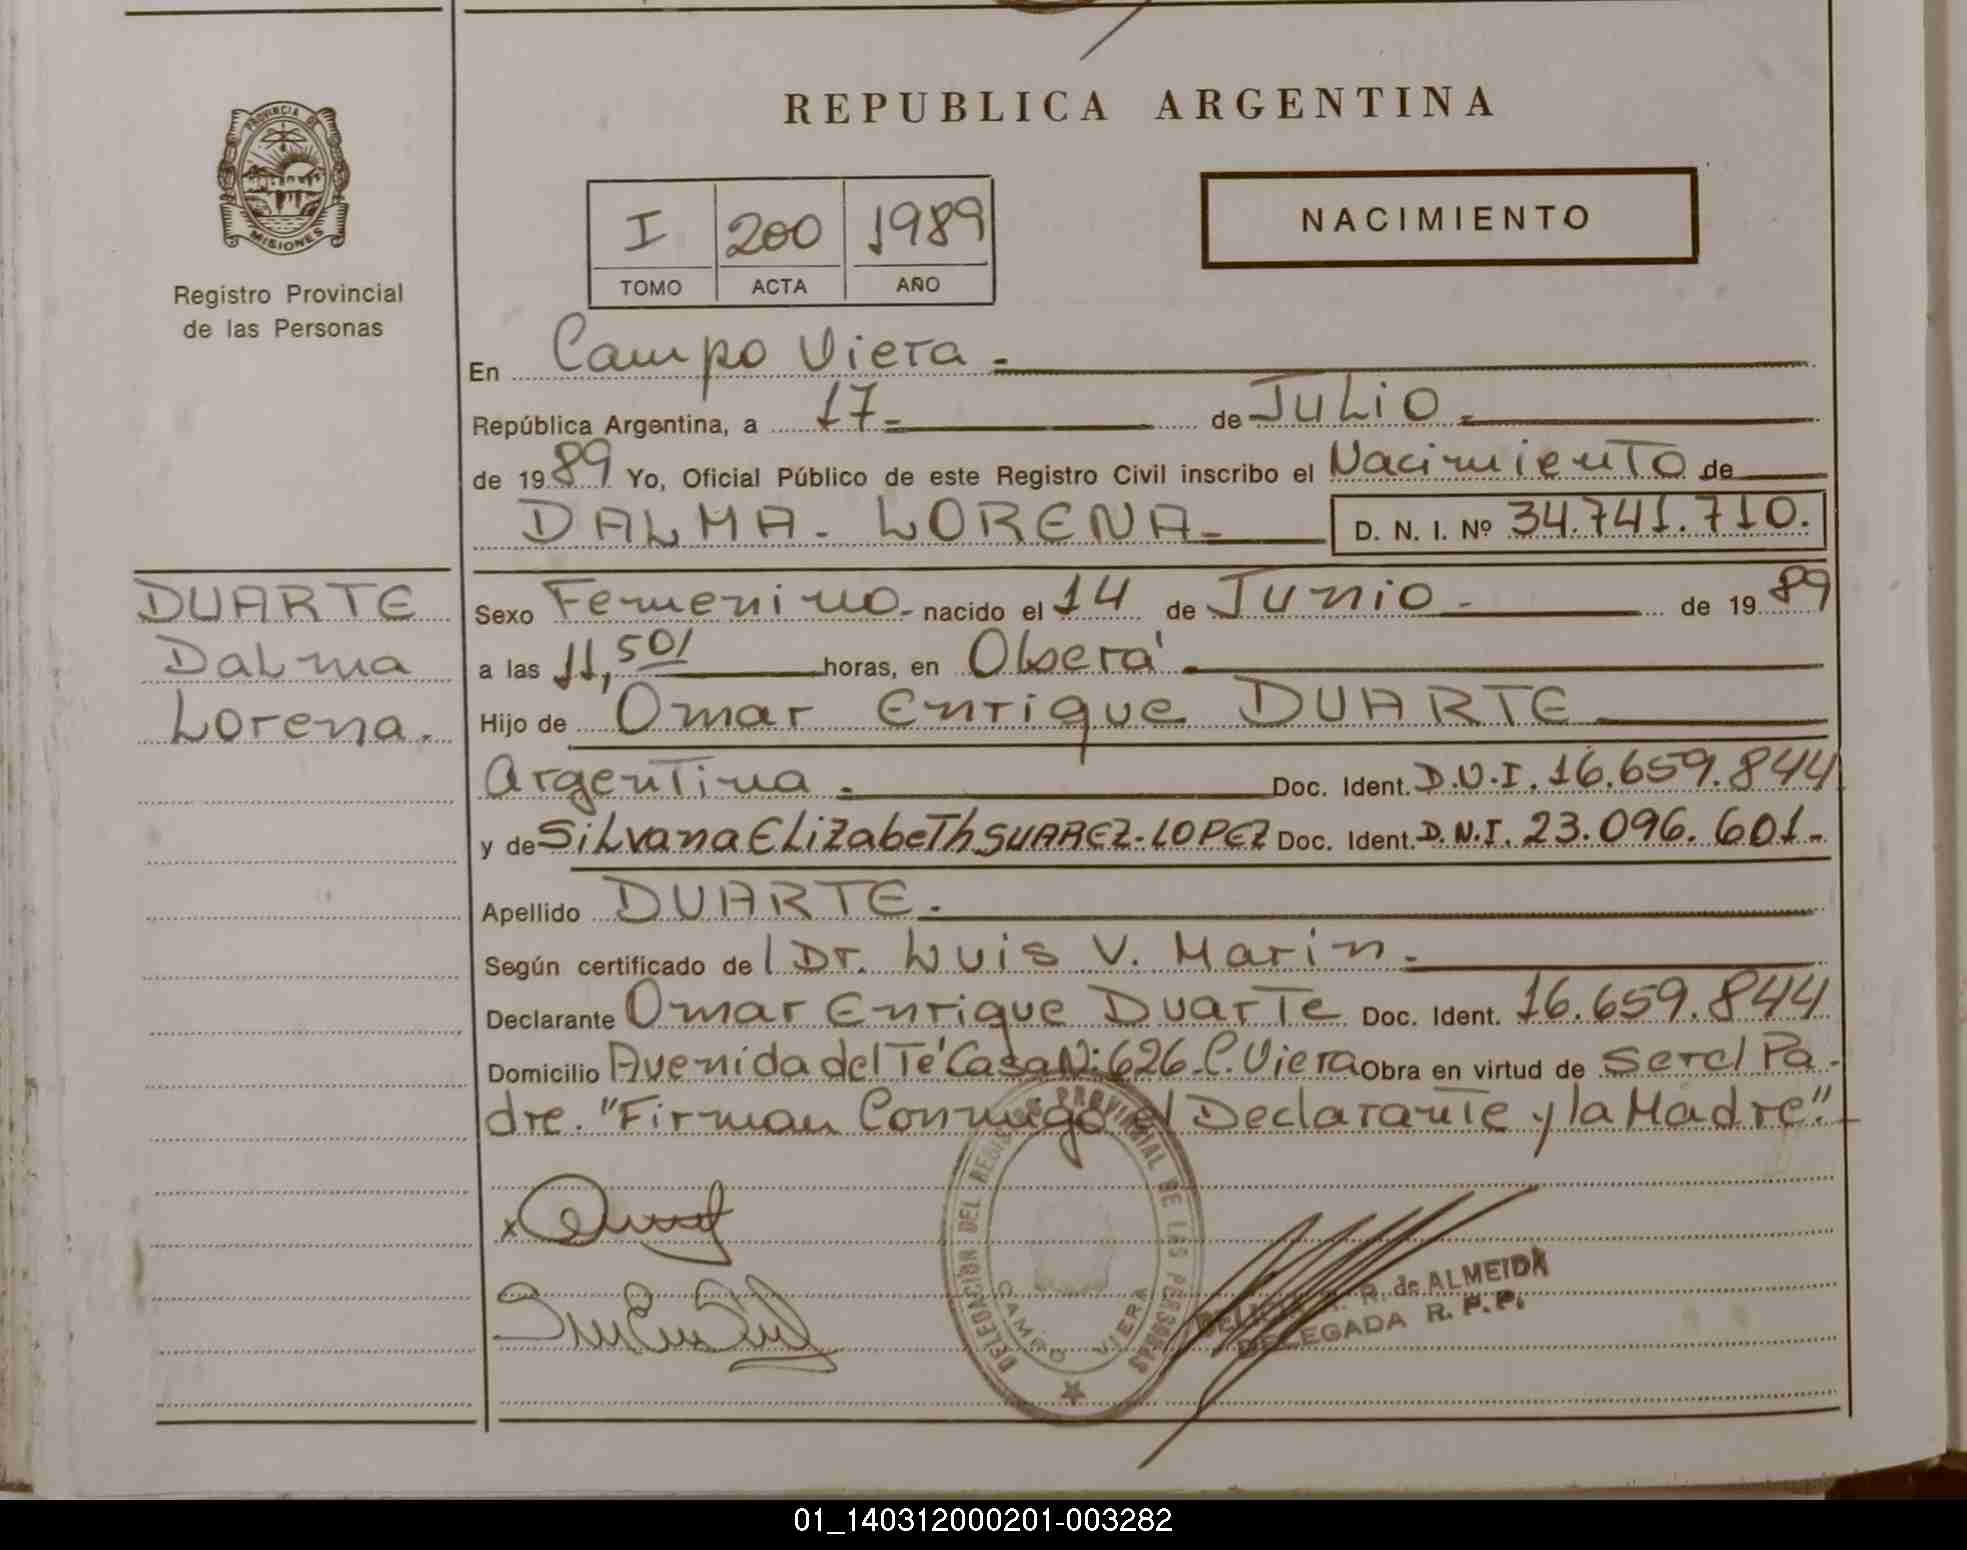 REPUBLICA ARGENTINA
PROVINCIA DE
MISIONES
Registro Provincial
de las Personas
I 200 1989
TOMO ACTA AÑO
NACIMIENTO
En Campo Viera.-
República Argentina, a 17- de Julio.-
de 1989 Yo, Oficial Público de este Registro Civil inscribo el Nacimiento de
DALMA- LORENA- D. N. I. Nº 34.741.710.
DUARTE
Dalma
Lorena.
Sexo Femenino- nacido el 14 de Junio- de 1989
a las 11,50/ horas, en Oberá
Hijo de Omar Enrique DUARTE
Argentina.- Doc. Ident. D.N.I. 16.659.844
y de Silvana Elizabeth SUAREZ-LOPEZ Doc. Ident. D.N.I. 23.096.601-
Apellido DUARTE.-
Según certificado de l Dr. Luis V. Marin.-
Declarante Omar Enrique Duarte Doc. Ident. 16.659.844
Domicilio Avenida del Té Casa Nº 626-C. Viera Obra en virtud de ser el Pa-
dre. "Firman Conmigo el Declarante y la Madre".-
DELEGACION DEL REGISTRO PROVINCIAL DE LAS PERSONAS
CAMPO VIERA
R. de ALMEIDA
DELEGADA R. P. P.
01_140312000201-003282